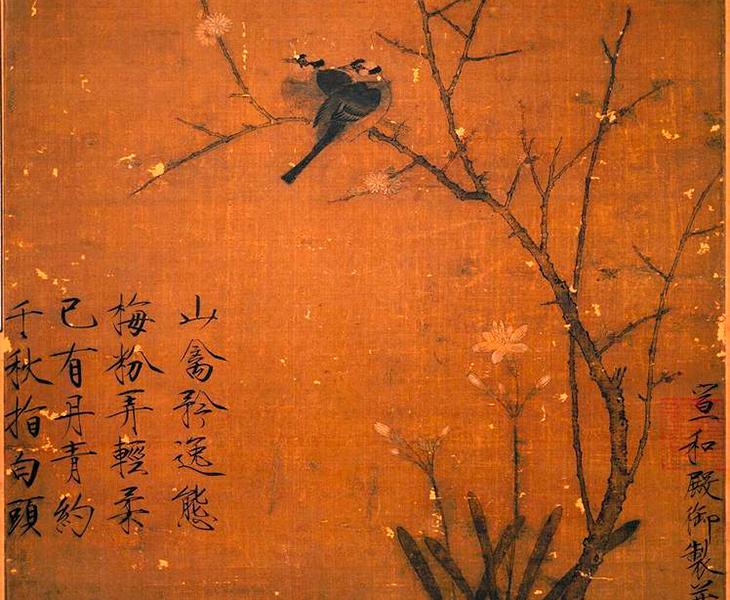 宣和殿御製
山禽矜逸態
梅粉弄輕柔
已有丹青約
千秋指白頭